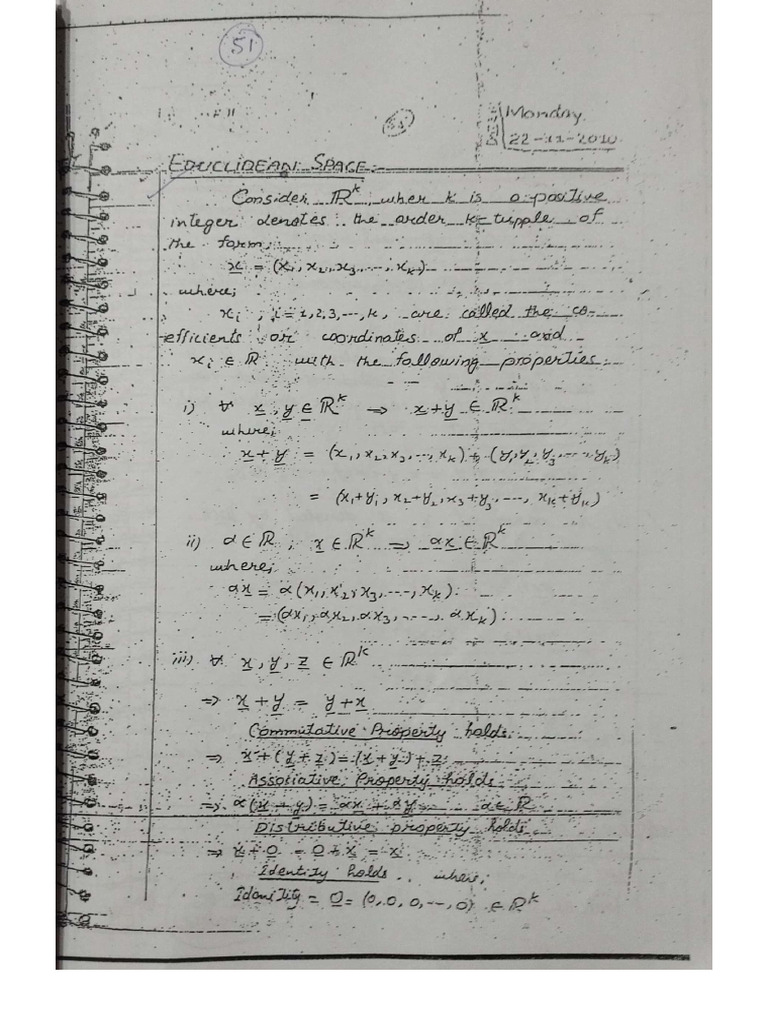 51
51
Monday
22-11-2010
EDUCLIDEAN SPACE:-
Consider ℝᵏ, wher k is o positive
integer denotes the order k-tripple of
the form,
x̲ = (x₁, x₂, x₃, ..., xₖ)
where;
xᵢ ; i = 1,2,3,---,k, are called the co-
efficients or coordinates of x̲ and
xᵢ ∈ ℝ with the following properties:
i) ∀ x̲, y̲ ∈ ℝᵏ ⇒ x̲+y̲ ∈ ℝᵏ
where;
x̲+y̲ = (x₁, x₂, x₃, ..., xₖ) + (y₁, y₂, y₃, ..., yₖ)
= (x₁+y₁, x₂+y₂, x₃+y₃, ---, xₖ+yₖ)
ii) α ∈ ℝ ; x̲ ∈ ℝᵏ ⇒ αx̲ ∈ ℝᵏ
where;
αx̲ = α(x₁, x₂, x₃, ---, xₖ)
= (αx₁, αx₂, αx₃, ---, αxₖ)
iii) ∀ x̲, y̲, z̲ ∈ ℝᵏ
⇒ x̲ + y̲ = y̲ + x̲
Commutative Property holds.
⇒ x̲+(y̲+z̲) = (x̲+y̲)+z̲
Associative Property holds
⇒ α(x̲+y̲) = αx̲ + αy̲ α ∈ ℝ
Distributive property holds
⇒ x̲ + 0̲ = 0̲ + x̲ = x̲
Identity holds. where;
Idenitity = 0̲ = (0, 0, 0, --, 0) ∈ ℝᵏ